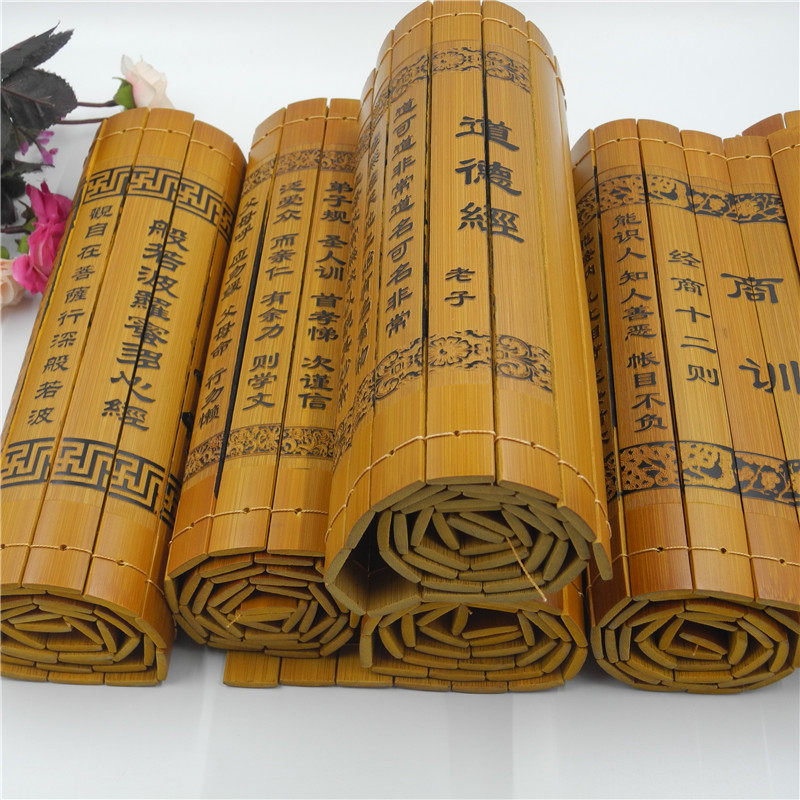 般若波羅蜜多心經
觀自在菩薩行深般若波
弟子规 圣人训 首孝悌 次谨信
泛爱众 而亲仁 有余力 则学文
父母呼 应勿缓 父母命 行勿懒
道德經
老子
道可道非常道名可名非常
商训
经商十二则
能识人 知人善恶 帐目不负